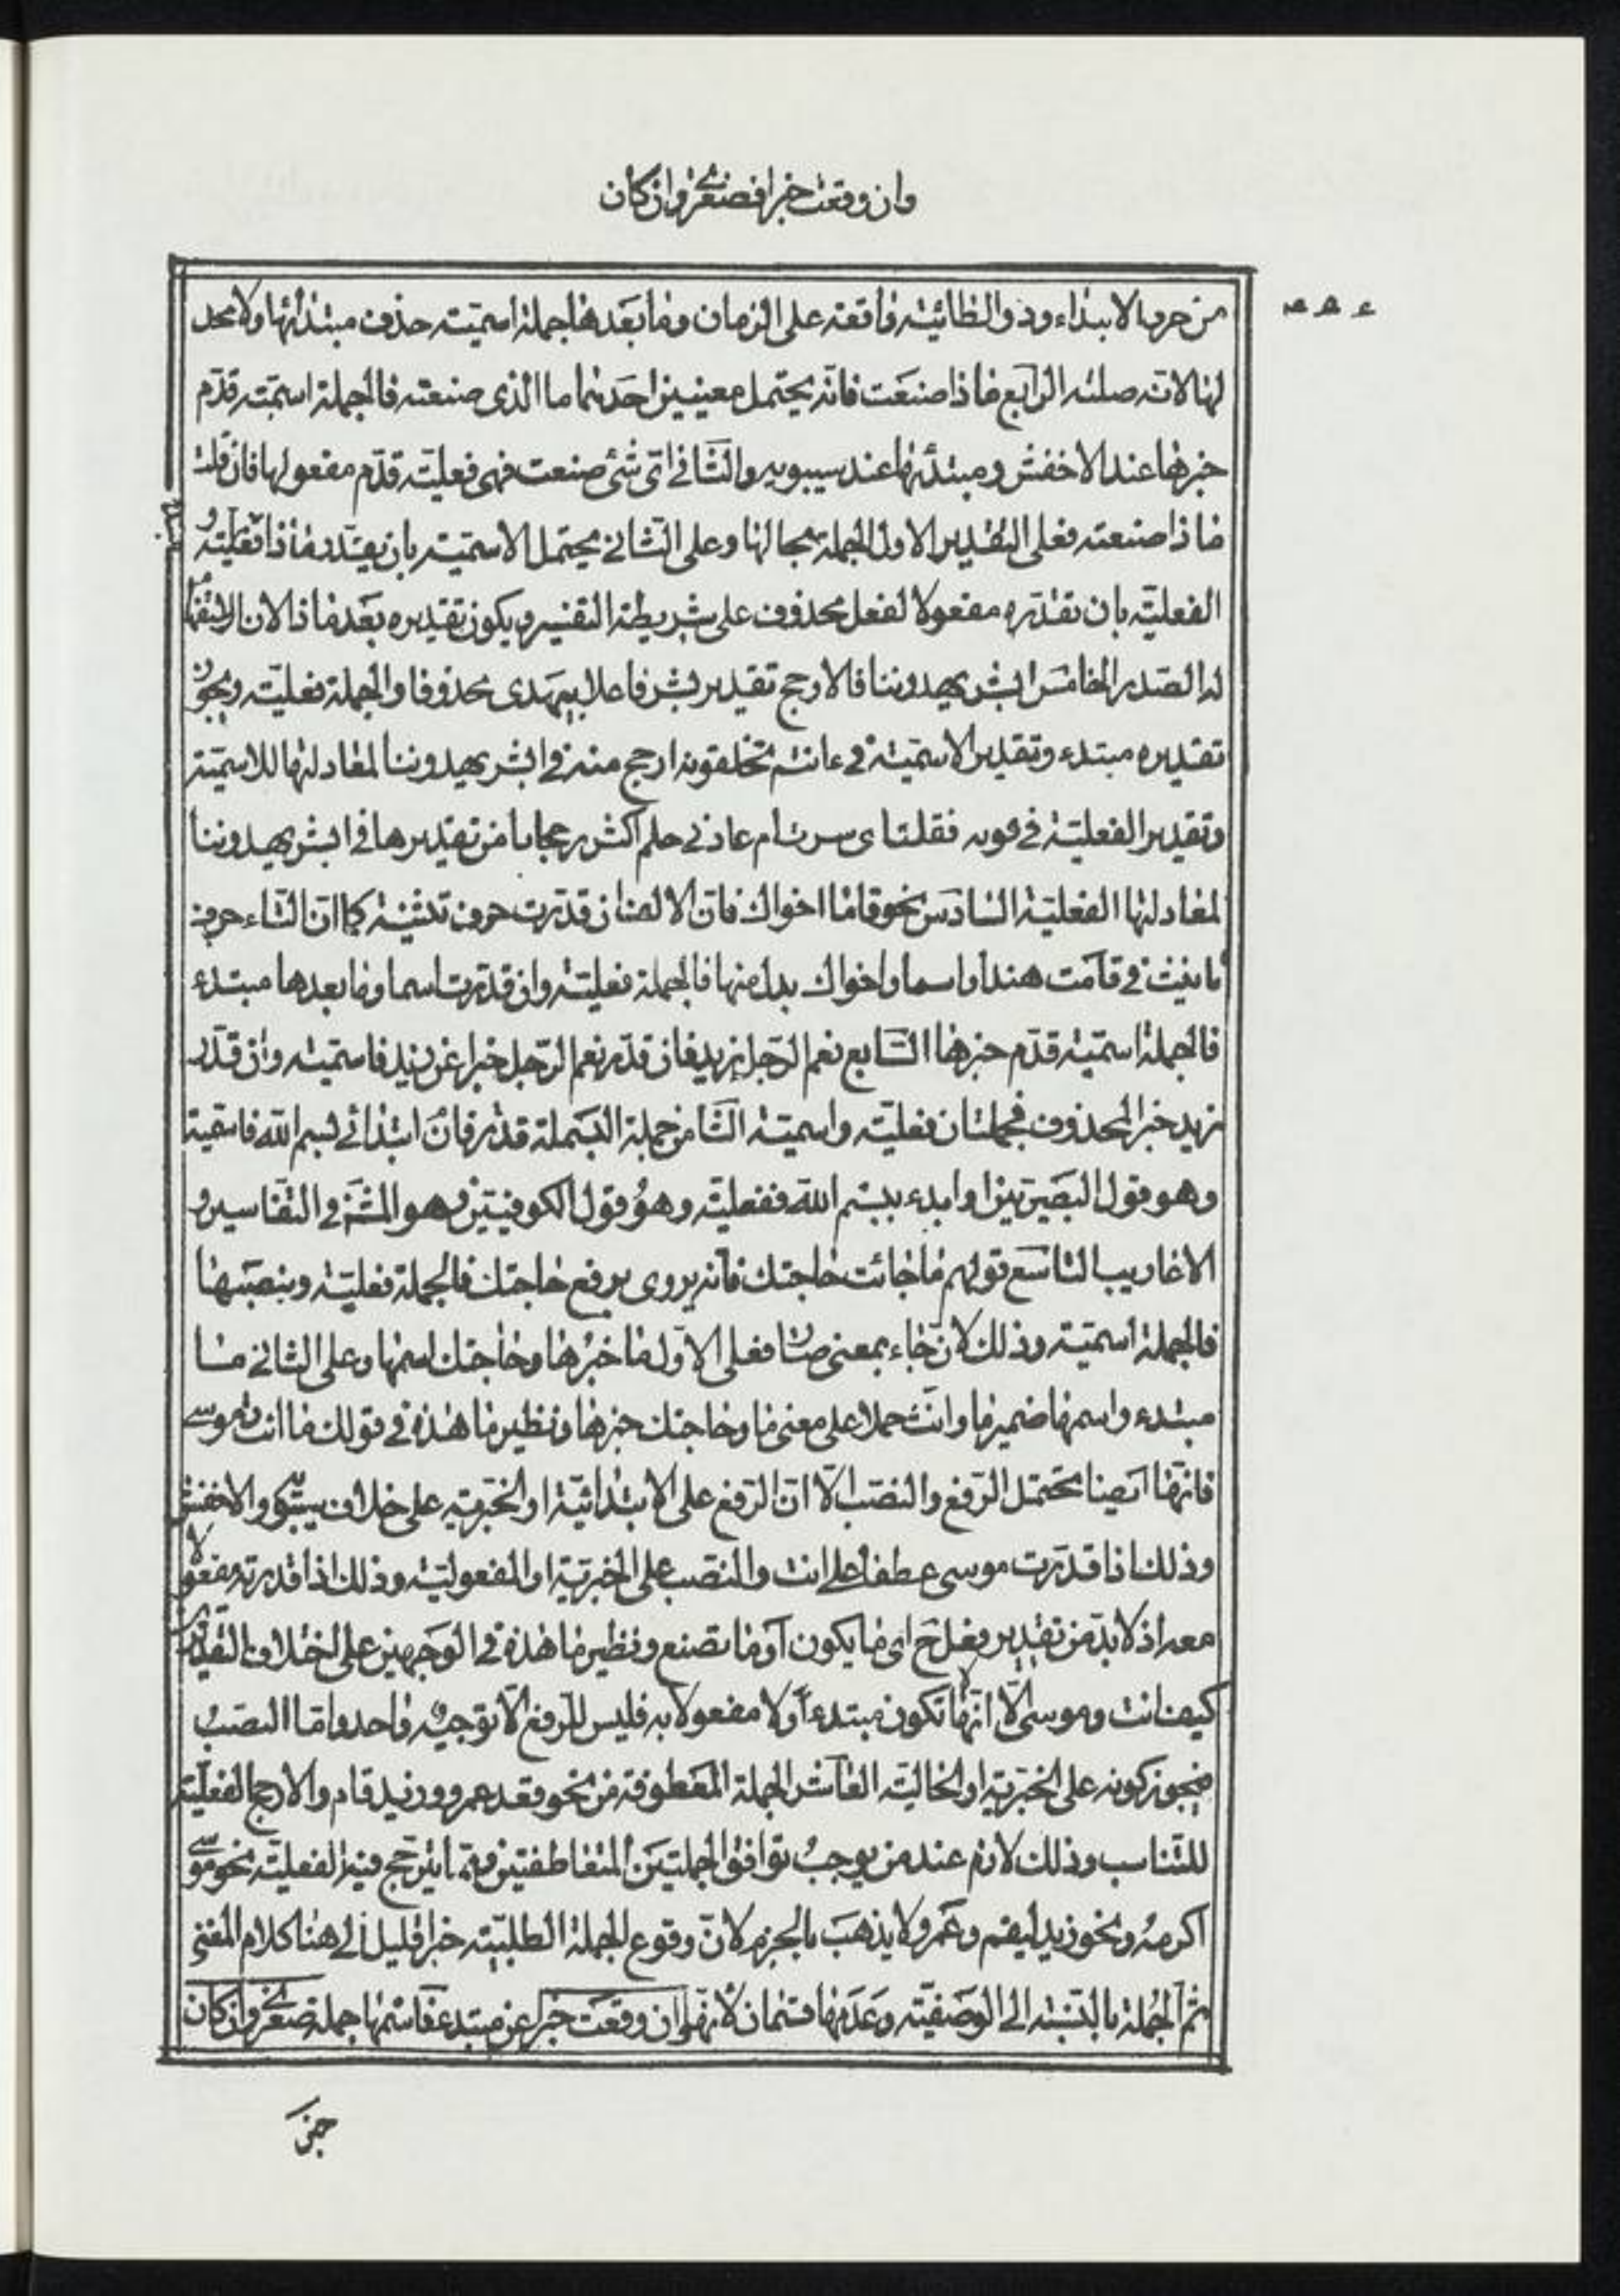 وان وقعت خبرا فصغرى وان كان
من حرف الابتداء وذو الطائيّة واقعة على الزمان وما بعدها جملة اسميّة حذف مبتدائها ولا محل
لها لانه صلته الرابع ماذا صنعت فانّه يحتمل معنيين احدهما ما الذى صنعته فالجملة اسميّة قدّم
خبرها عند الاخفش ومبتدئها عند سيبويه والثانى اىّ شئ صنعت فهى فعليّة قدّم مفعولها فان قلت
ماذا صنعته فعلى التقدير الاول الجملة بحالها وعلى الثانى يحتمل الاسميّة بان يقدر ماذا
الفعليّة بان تقدّره مفعولا لفعل محذوف على شريطة التفسير ويكون تقديره بعد ماذا لان الاستفهام
له الصدر الخامس ابشر يهدوننا فالارجح تقدير بشر فاعلا بيهدى محذوفا والجملة فعليّة ويجوز
تقديره مبتدء وتقدير الاسميّة فى ءانتم تخلقونه ارجح منه فى ابشر يهدوننا لمعادلتها للاسميّة
وتقدير الفعليّة فى قوله فقلت اى سرت ام عادنى حلم اكثر رجحانا من تقديرها فى ابشر يهدوننا
لمعادلتها الفعليّة السّادس نحو قاما اخواك فانّ الالف ان قدّرت حرف تثنية كما انّ التاء حرف
تانيث فى قامت هند او اسما واخواك بدل منها فالجملة فعليّة وان قدّرت اسما وما بعدها مبتدء
فالجملة اسميّة قدّم خبرها السّابع نعم الرّجل زيد فان قدّر نعم الرّجل خبرا عن زيد فاسميّة وان قدّر
زيد خبر المحذوف فجملتان فعليّة واسميّة الثّامن جملة البسملة قدّر فان ابتدائى بسم الله فاسميّة
وهو قول البصريّين او ابدء ببسم الله ففعليّة وهو قول الكوفيّين وهو المشهور فى التفاسير و
الاعاريب التاسع قولهم ما جائت حاجتك فانه يروى برفع حاجتك فالجملة فعليّة وبنصبها
فالجملة اسميّة وذلك لان جاء بمعنى صار فعلى الاوّل ما خبرها وحاجتك اسمها وعلى الثانى ما
مبتدء واسمها ضمير ما وانّث حملا على معنى ما وحاجتك خبرها ونظير ما هذه فى قولك ما انت وموسى
فانّها ايضا تحتمل الرّفع والنصب الّا انّ الرّفع على الابتدائيّة او الخبريّة على خلاف سيبويه والاخفش
وذلك اذا قدّرت موسى عطفا على انت والنصب على الخبريّة او المفعوليّة وذلك اذا قدرته مفعولا
معه اذ لابدّ من تقدير فعل ح اى ما يكون او ما تصنع ونظير ما هذه فى الوجهين على اختلاف التقديرين
كيف انت وموسى الّا انّها لا تكون مبتدءا ولا مفعولا به فليس للرّفع الّا توجيه واحد وامّا النصب
فيجوز كونه على الخبريّة او الحاليّة العاشر الجملة المعطوفة من نحو قعد عمرو وزيد قام والارجح الفعليّة
للتناسب وذلك لازم عند من يوجب توافق الجملتين المتعاطفتين وممّا يترجح فيه الفعليّة نحو موسى
اكرمه ونحو زيد ليقم وعمرو لا يذهب بالجزم لانّ وقوع الجملة الطلبيّة خبرا قليل الى هنا كلام المغنى
ثمّ الجملة بالنّسبة الى الوصفيّة وعدمها قسمان لانّها ان وقعت خبرا عن مبتدء فاسمها جملة صغرى وان كان